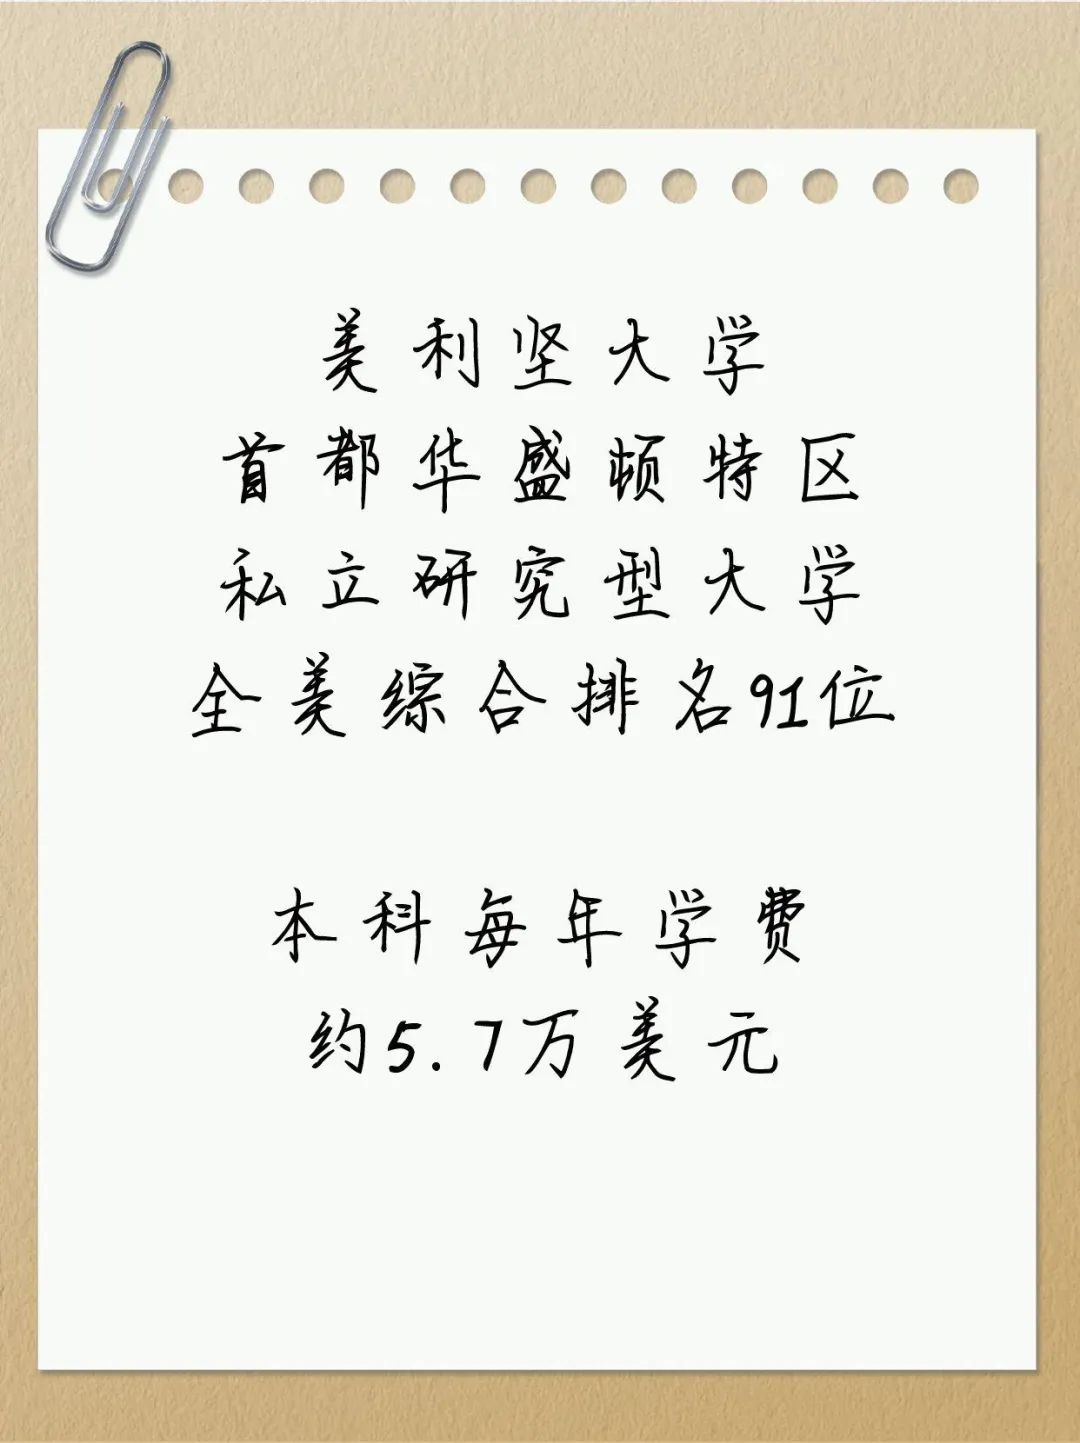 美利坚大学
首都华盛顿特区
私立研究型大学
全美综合排名91位
本科每年学费
约5.7万美元